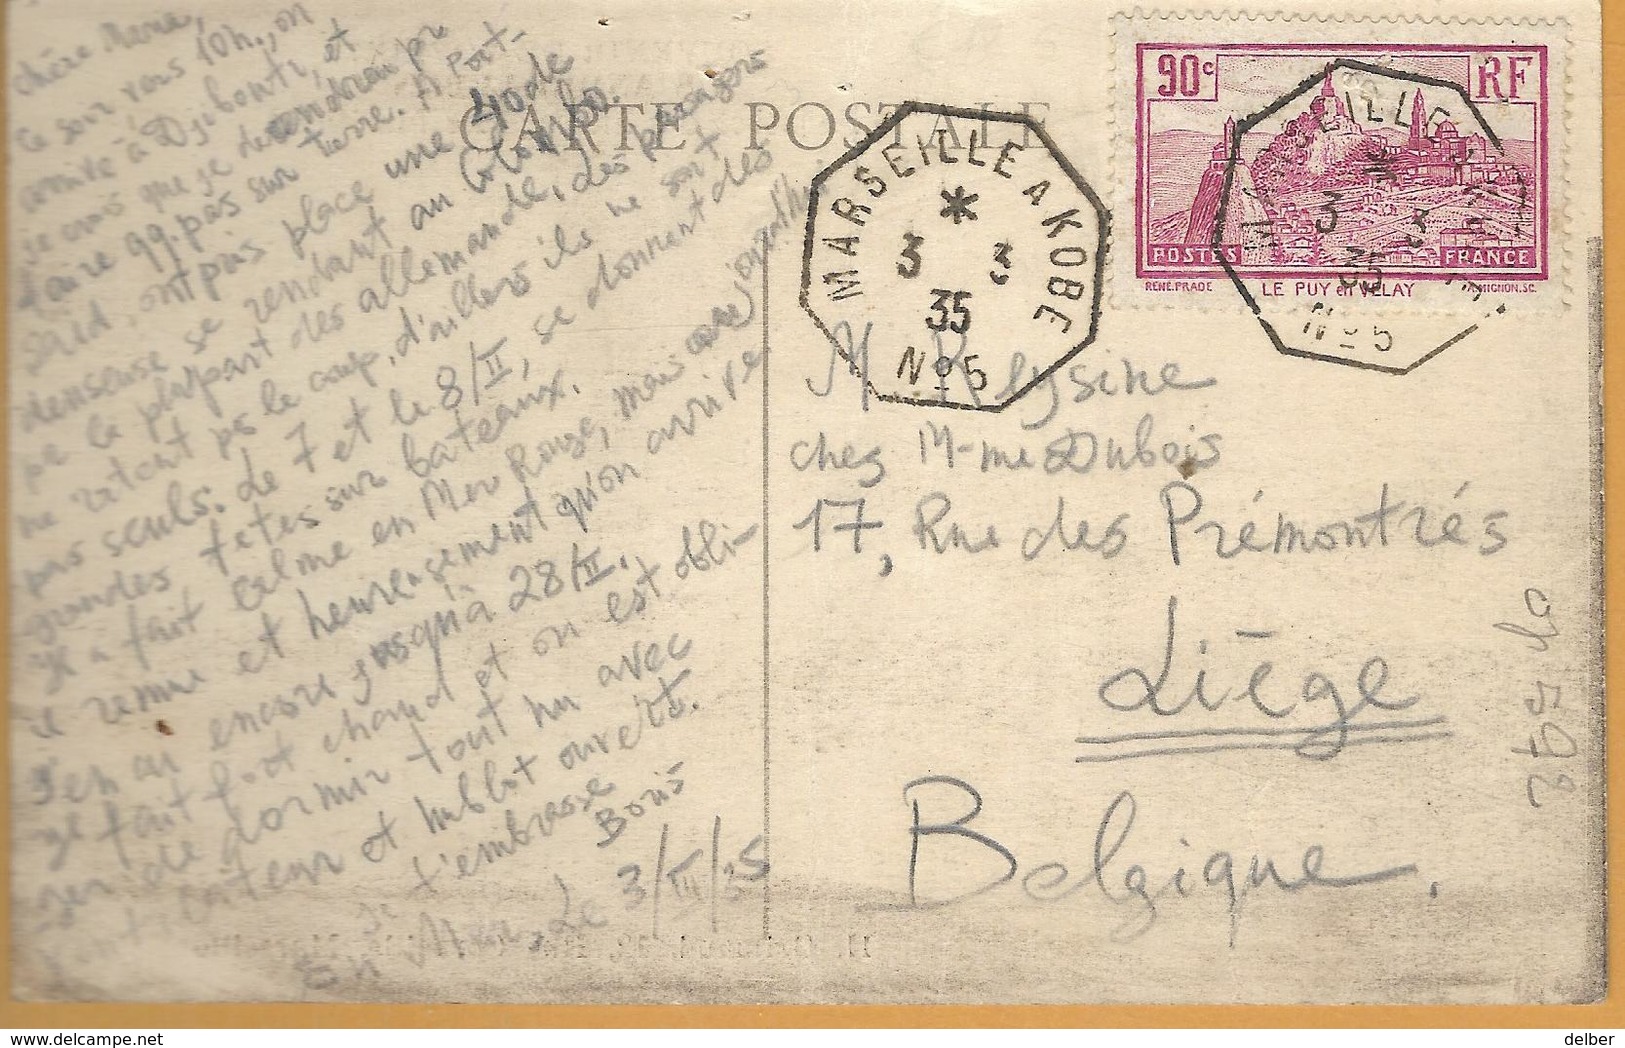 Chère Marie,
Ce soir vers 10h., on
arrive à Djibouti, et
je crois que je descendrai pr
faire qq. pas sur terre. A Port-
Saïd, ont pris place une 40de
danseuse se rendant au Colombo.
pe la plupart des allemande, des passagers
ne ratent pas le coup, d'ailleurs ils ne sont
pas seuls. Le 7 et le 8/II, se donnent des
grandes fêtes sur bateaux.
Il a fait calme en Mer Rouge, mais
il remue et heureusement qu'on arrive.
J'en ai encore jusqu'à 28/III.
Il fait fort chaud et on est obli-
-ger de dormir tout nu avec
ventilateur et hublot ouverts.
Je t'embrasse
Boris
En Mer, Le 3/III/35
CARTE POSTALE
90c
RF
POSTES
FRANCE
RENÉ.PRADE
LE PUY en VELAY
MIGNON.SC.
MARSEILLE A KOBE
3 3
35
No 5
MARSEILLE
3 3
35
No 5
M. Reysine
chez M-me Dubois
17, Rue des Prémontrés
Liège
Belgique.
delber